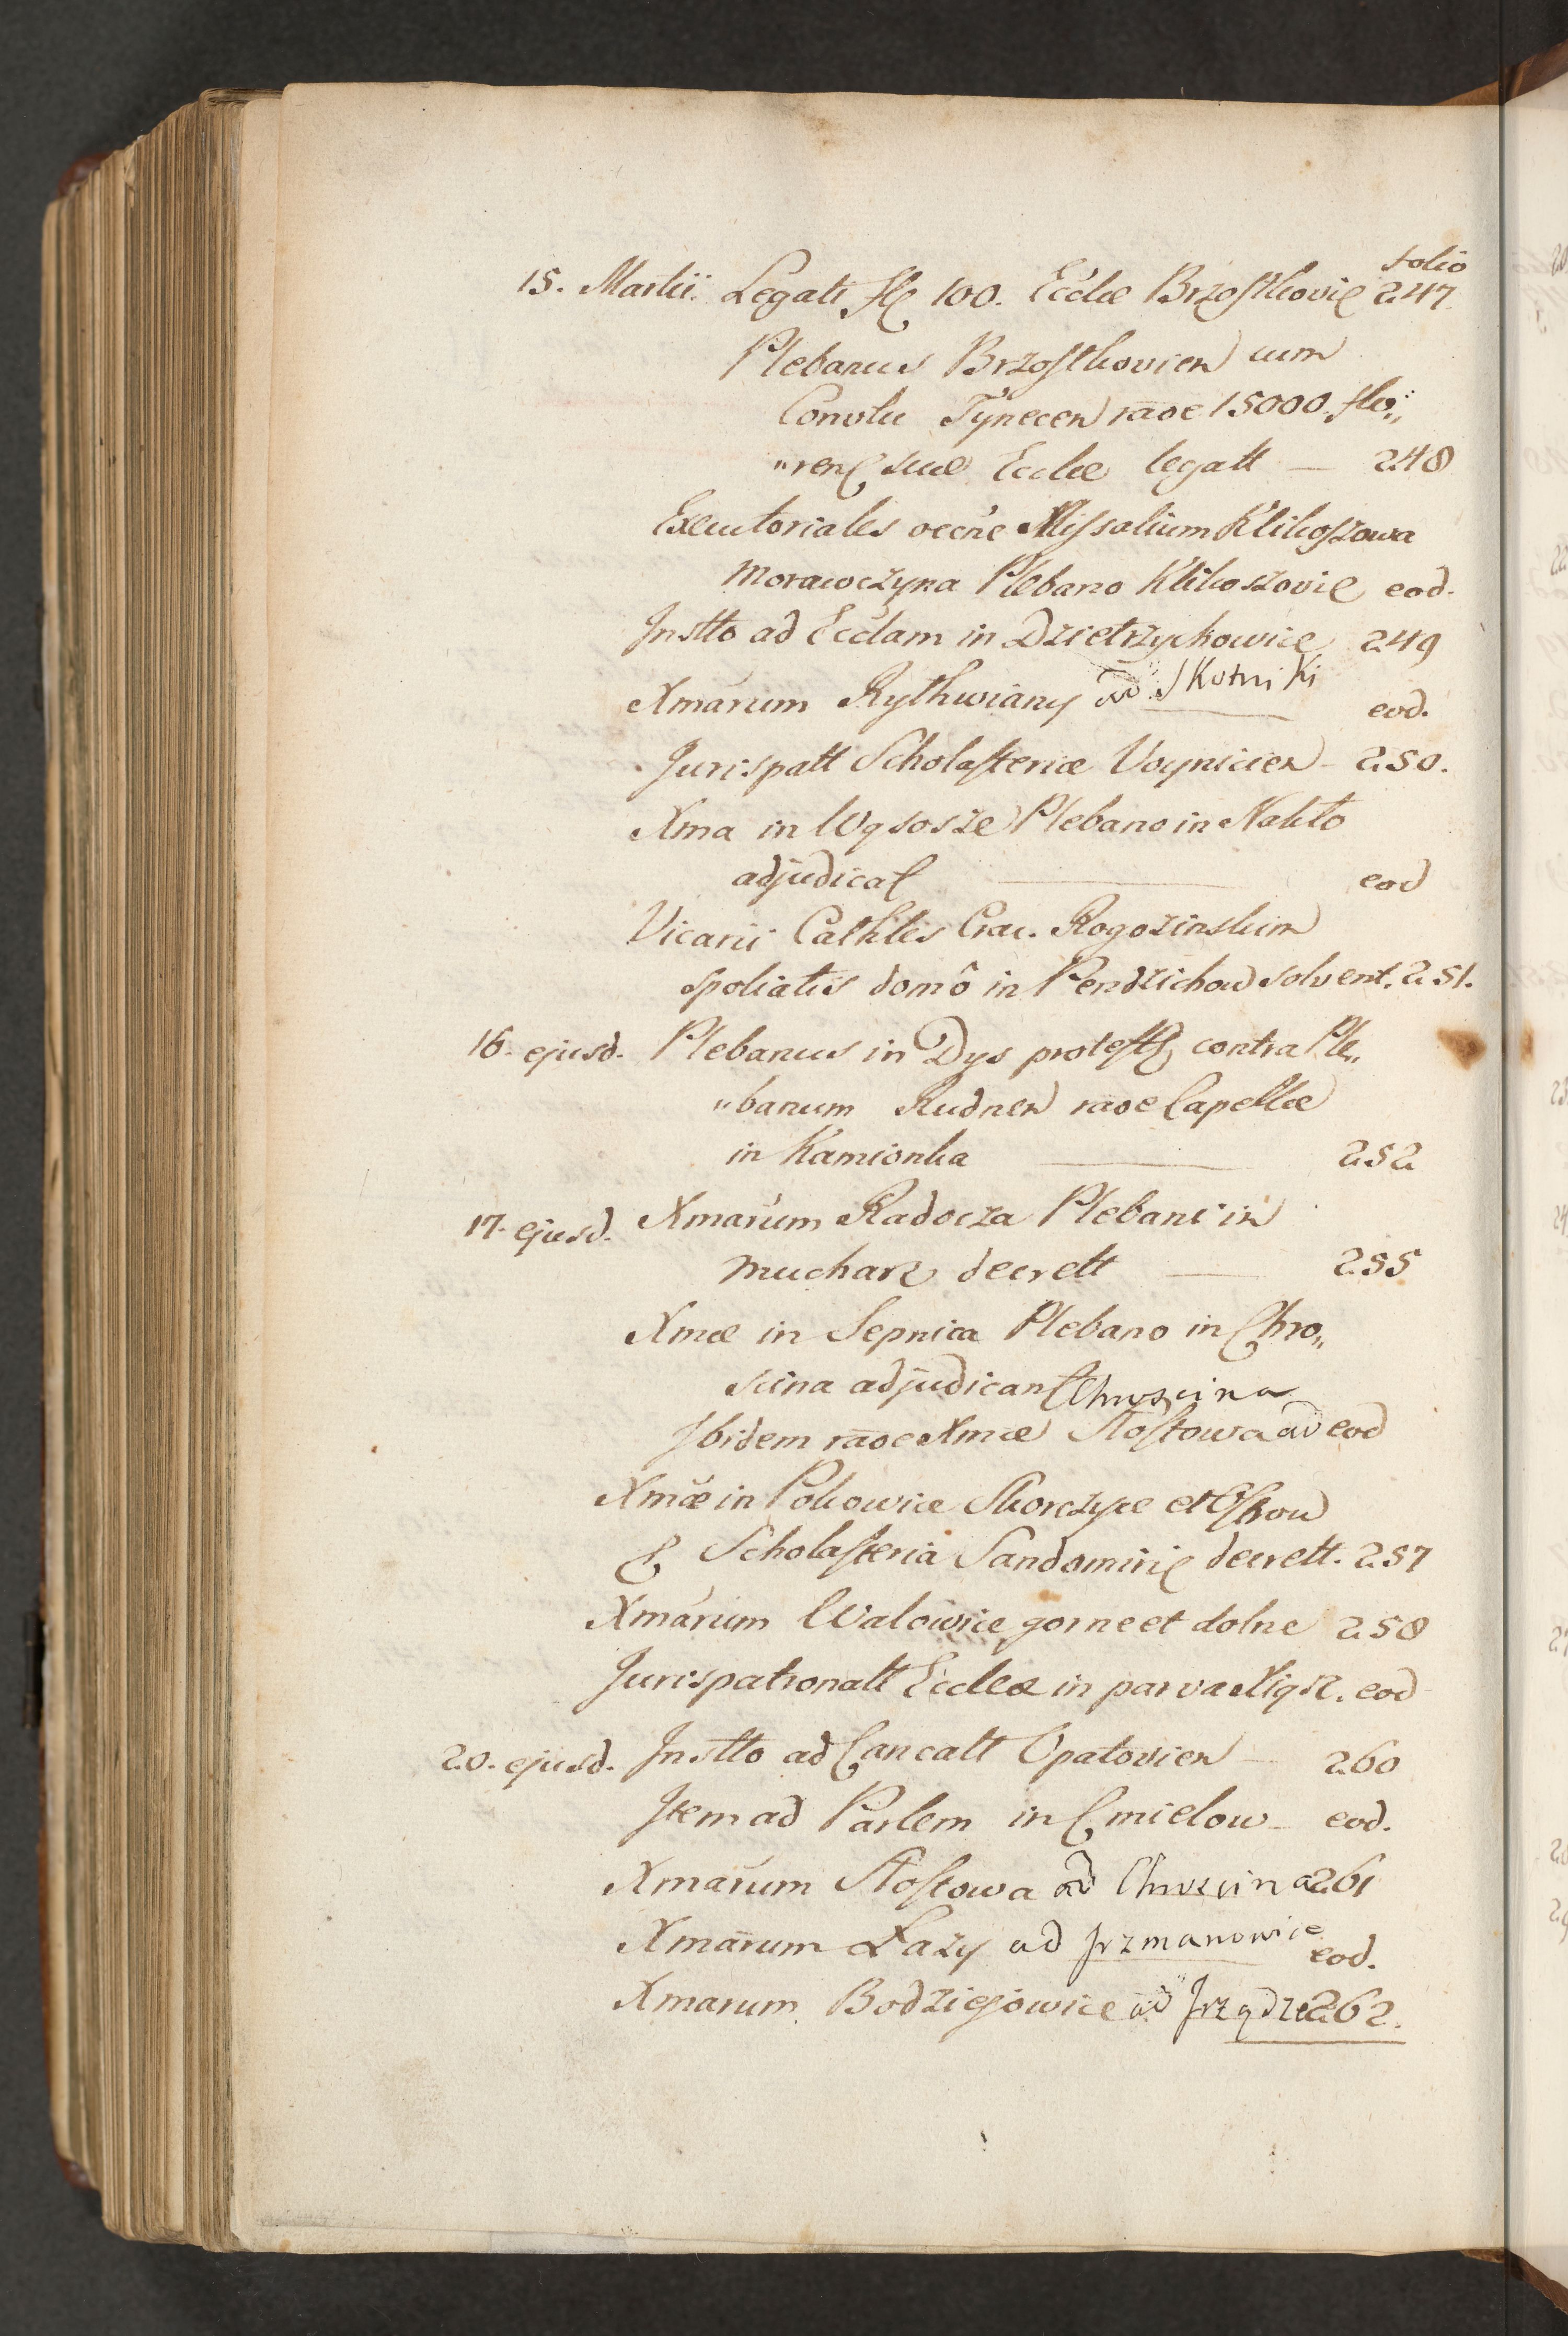 folio
15. Martii. Legati fl 100. Ecclae Brzostkovie 247.
Plebanus Brzostkovien cum
Convtu Tynecen raoe 15000. flo„
„ren suae Ecclae legatt — 248
Executoriales occne Missalium Klikoszowa
Morawczyna Plebano Klikoszovie eod.
Instto ad Ecclam in Dzietrzychowice 249
Xmarum Rythwiany ad Skotniki eod.
Jurispatt Scholasteriae Voynicien - 250.
Xma in Wąsosze Plebano in Nakło
adjudicat — eod
Vicarii Cathlis Crac. Rogozinskim
spoliatus domô in Pendzichow solvent. 251.
16. ejusd. Plebanus in Dys protest contra Ple„
„banum Rudnen raoe Capellae
in Kamionka — 252
17. ejusd. Xmarum Radocza Plebani in
Mucharz decrett — 255
Xmae in Sepnica Plebano in Chro„
scina adjudicant Chroscina
Ibidem raoe Xmae Stostowa ad eod
Xmae in Pokowice Skorczyce et Ostrow
& Scholasteria Sandomirie decrett. 257
Xmarum Walowice gorne et dolne 258
Jurispatronatt Ecclae in parva Xiąz. eod
20. ejusd. Instto ad Cancalt Opatovien — 260
Item ad Parlem in Cmielow — eod.
Xmarum Stostowa ad Chroscina 261
Xmarum Łazy ad Jrzmanowice eod.
Xmarum Bodziejowice ad Jrządze 262.